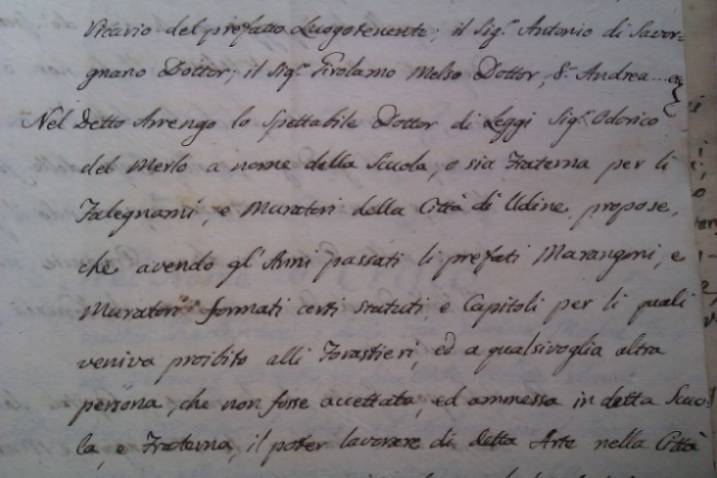 Vicario del prefatto Luogotenente; il Sig.r Antonio di Savor=
gnano Dottor; il Sig.r Girolamo Melso Dottor, S.r Andrea....
Nel Detto Arrengo lo Spettabile Dottor di Leggi Sig.r Odorico
del Merlo a nome della Scuola, o sia Fraterna per li
Falegnami, e Muratori della Città di Udine propose,
che avendo gl'Anni passati li prefati Marangoni, e
Muratori formati certi statuti, e Capitoli per li quali
veniva proibito alli Forastieri, ed a qualsivoglia altra
persona, che non fosse accettata, ed ammessa in detta Scuo=
la, e Fraterna, il poter lavorare di detta Arte nella Città